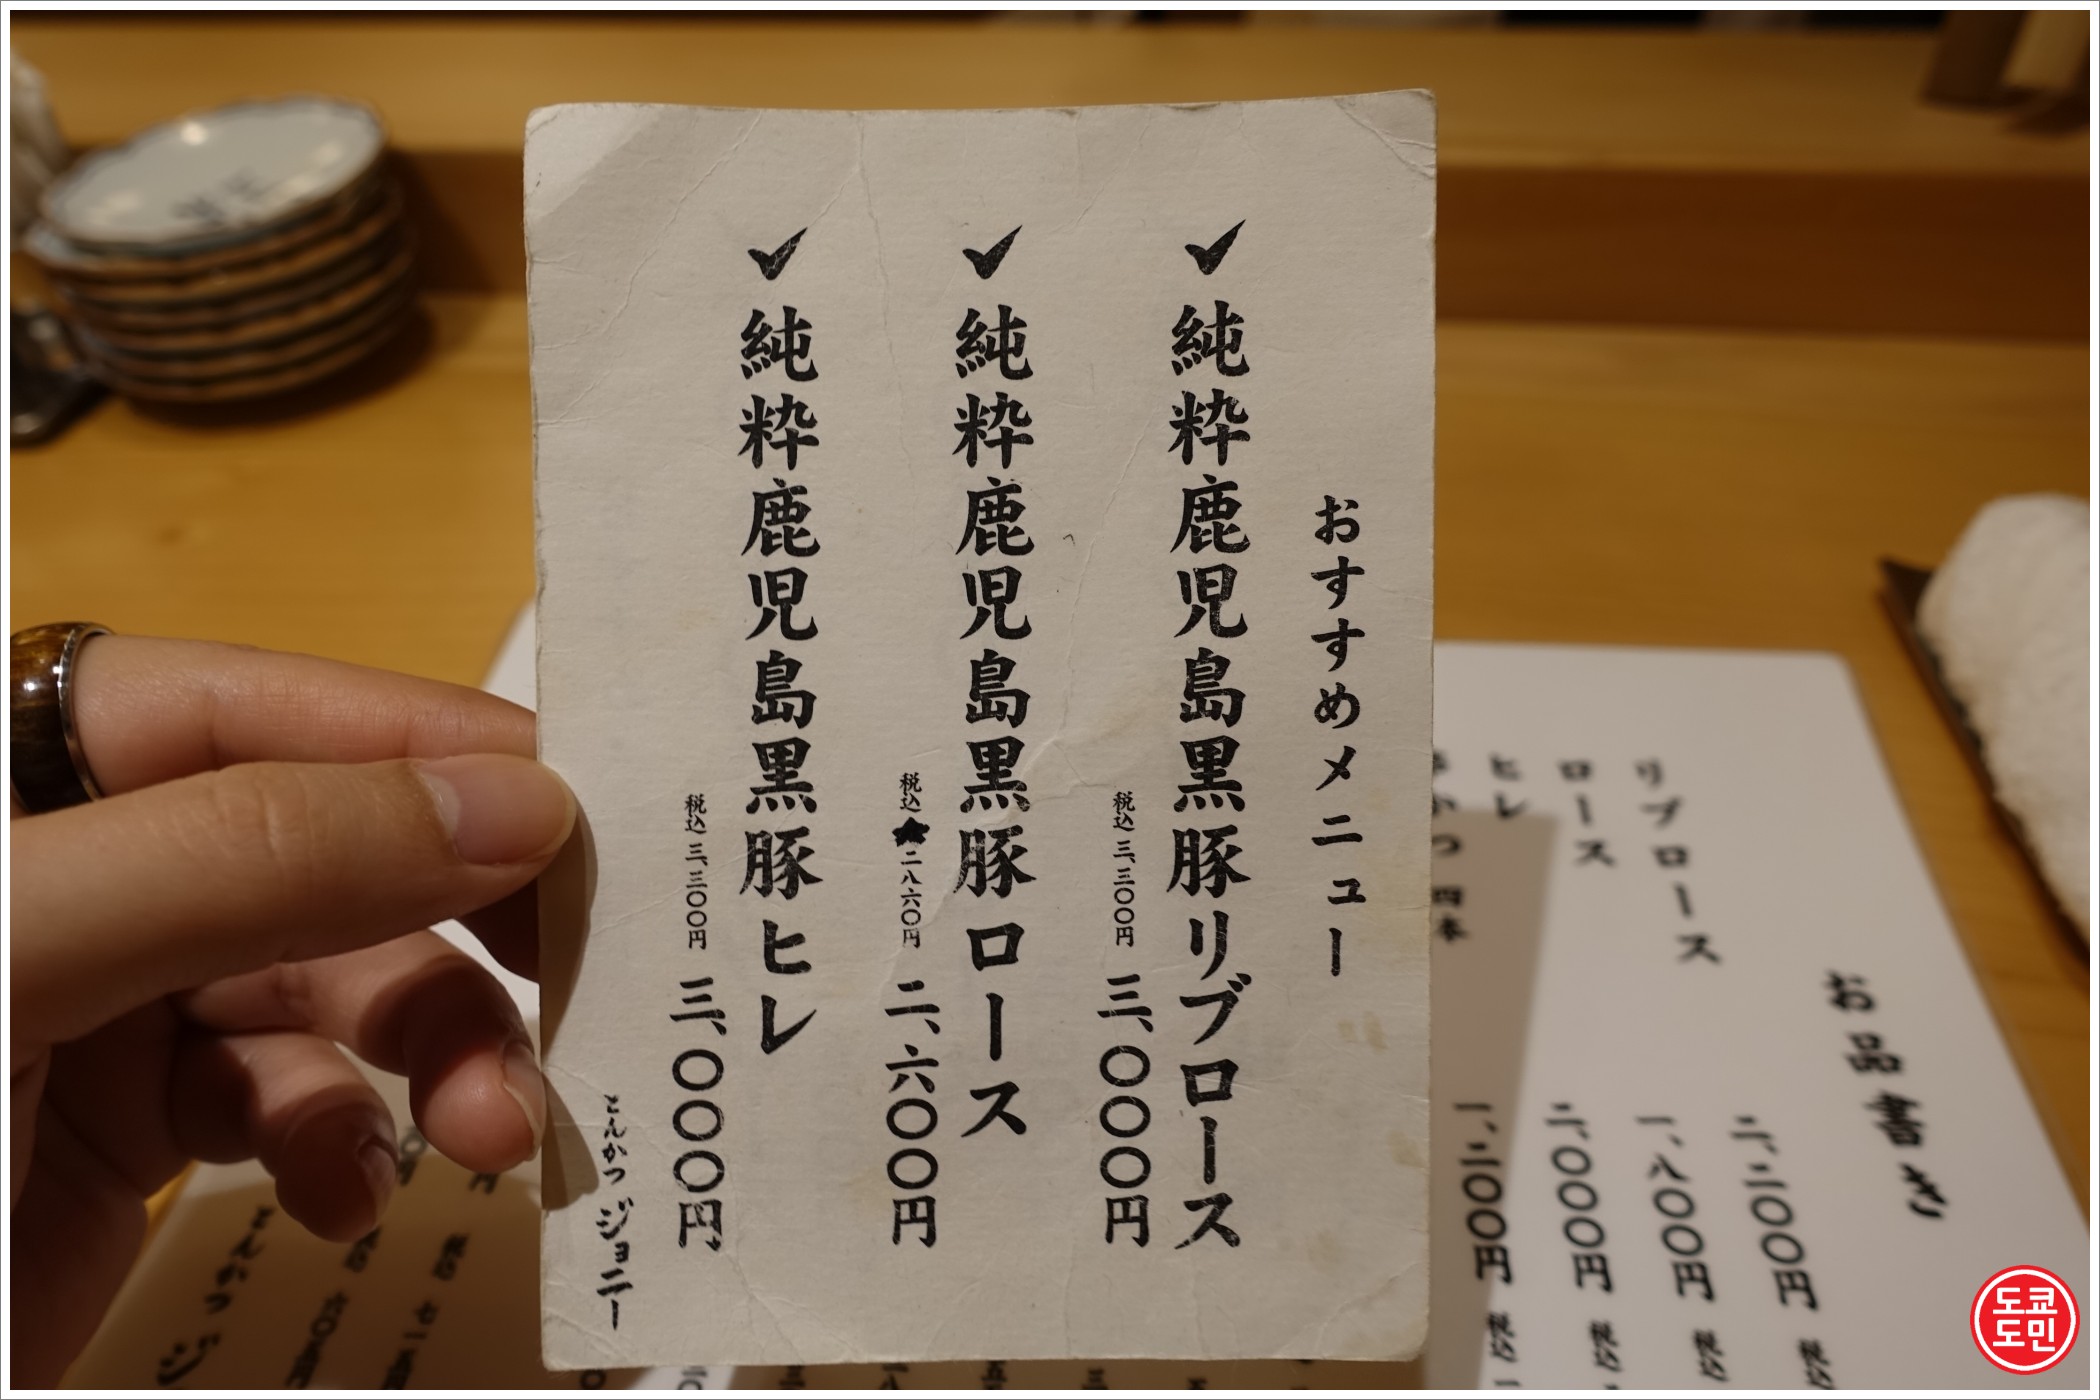 おすすめメニュー
✓純粋鹿児島黒豚リブロース
税込 三、三〇〇円 三、〇〇〇円
✓純粋鹿児島黒豚ロース
税込 二八六〇円 二、六〇〇円
✓純粋鹿児島黒豚ヒレ
税込 三、三〇〇円 三、〇〇〇円
とんかつ ジョニー
お品書き
リブロース 二、二〇〇円 税込
ロース 一、八〇〇円 税込
ヒレ 二、〇〇〇円 税込
かつ 四本 一、二〇〇円 税込
とんかつ ジ
도쿄
도민